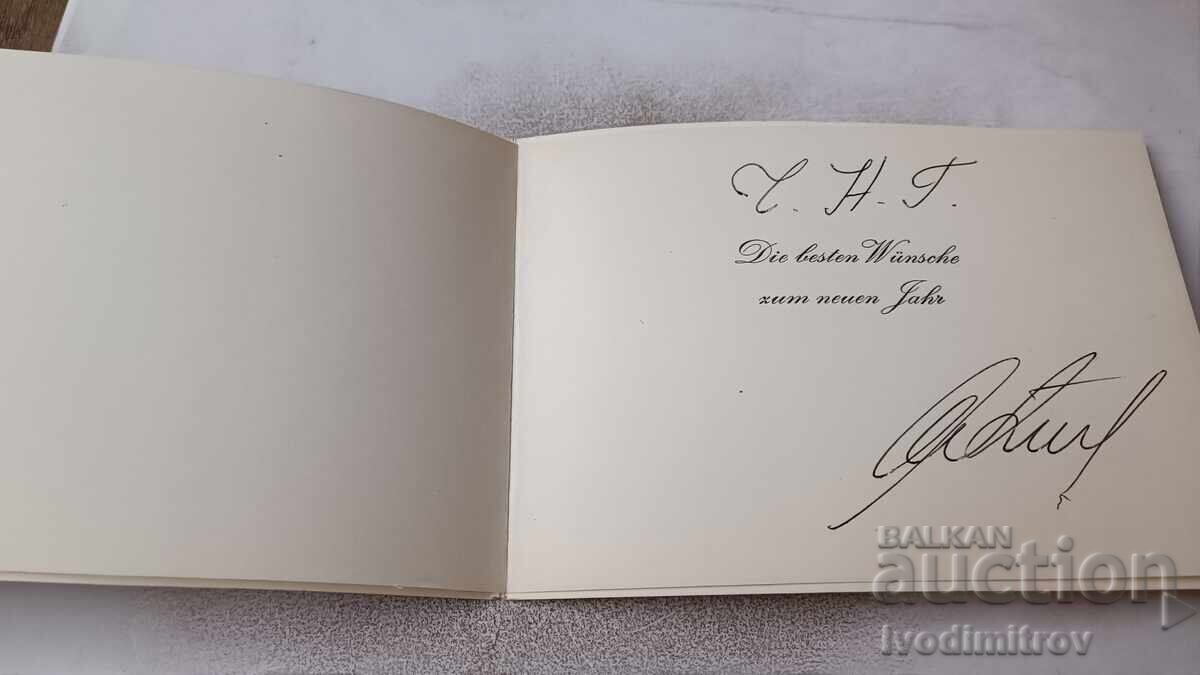 Ч. Н. Г.
Die besten Wünsche
zum neuen Jahr
BALKAN
auction
Ivodimitrov